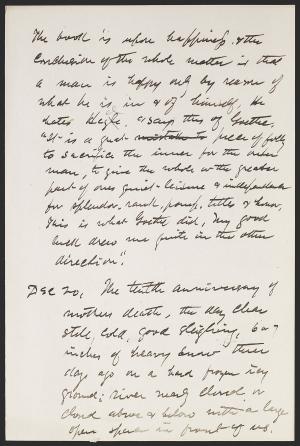 The book is upon happiness & the
conclusion of the whole matter is that
a man is happy only by reason of
what he is in & of himself. He
hates Hegle, & says this of Goethe,
"It is a great mistake to piece of folly
to sacrifice the inner for the outer
man, to give the whole or the greater
part of ones quiet-leisure & independence
for splendor, rank, pomp, titles & honor,
This is what Goethe did, My good
luck drew me quite in the other
direction".
Dec 20, The tenth anniversary of
mothers death, the day clear
still, cold, good sleighing, 6 or 7
inches of heavy snow three
days ago on a hard frozen icy
ground; river nearly closed, or
closed above & below with a large
open space in front of us.